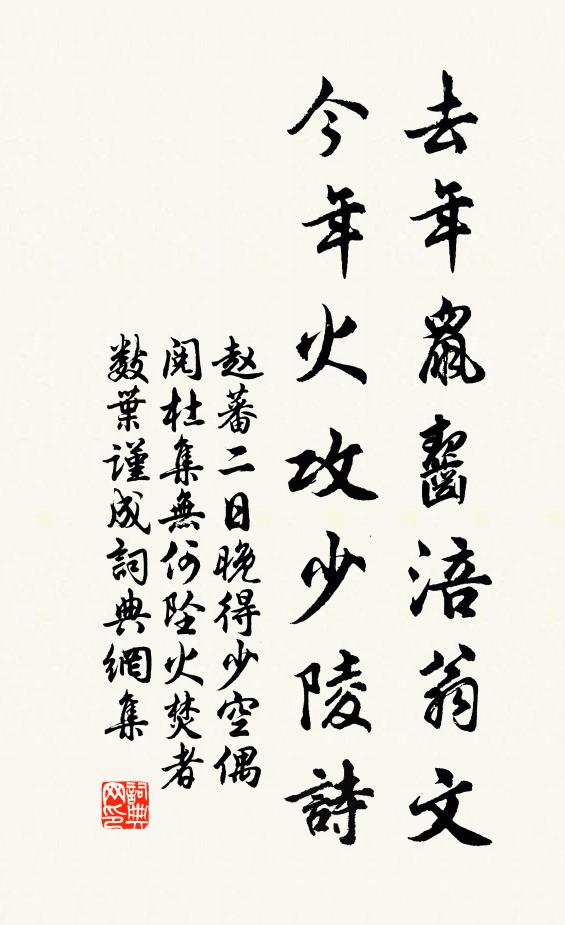 去年鼠齧涪翁文
今年火攻少陵詩
赵蕃二日晚得少空偶
閱杜集無何坠火焚者
数葉謹成詞典網集
詞典网印